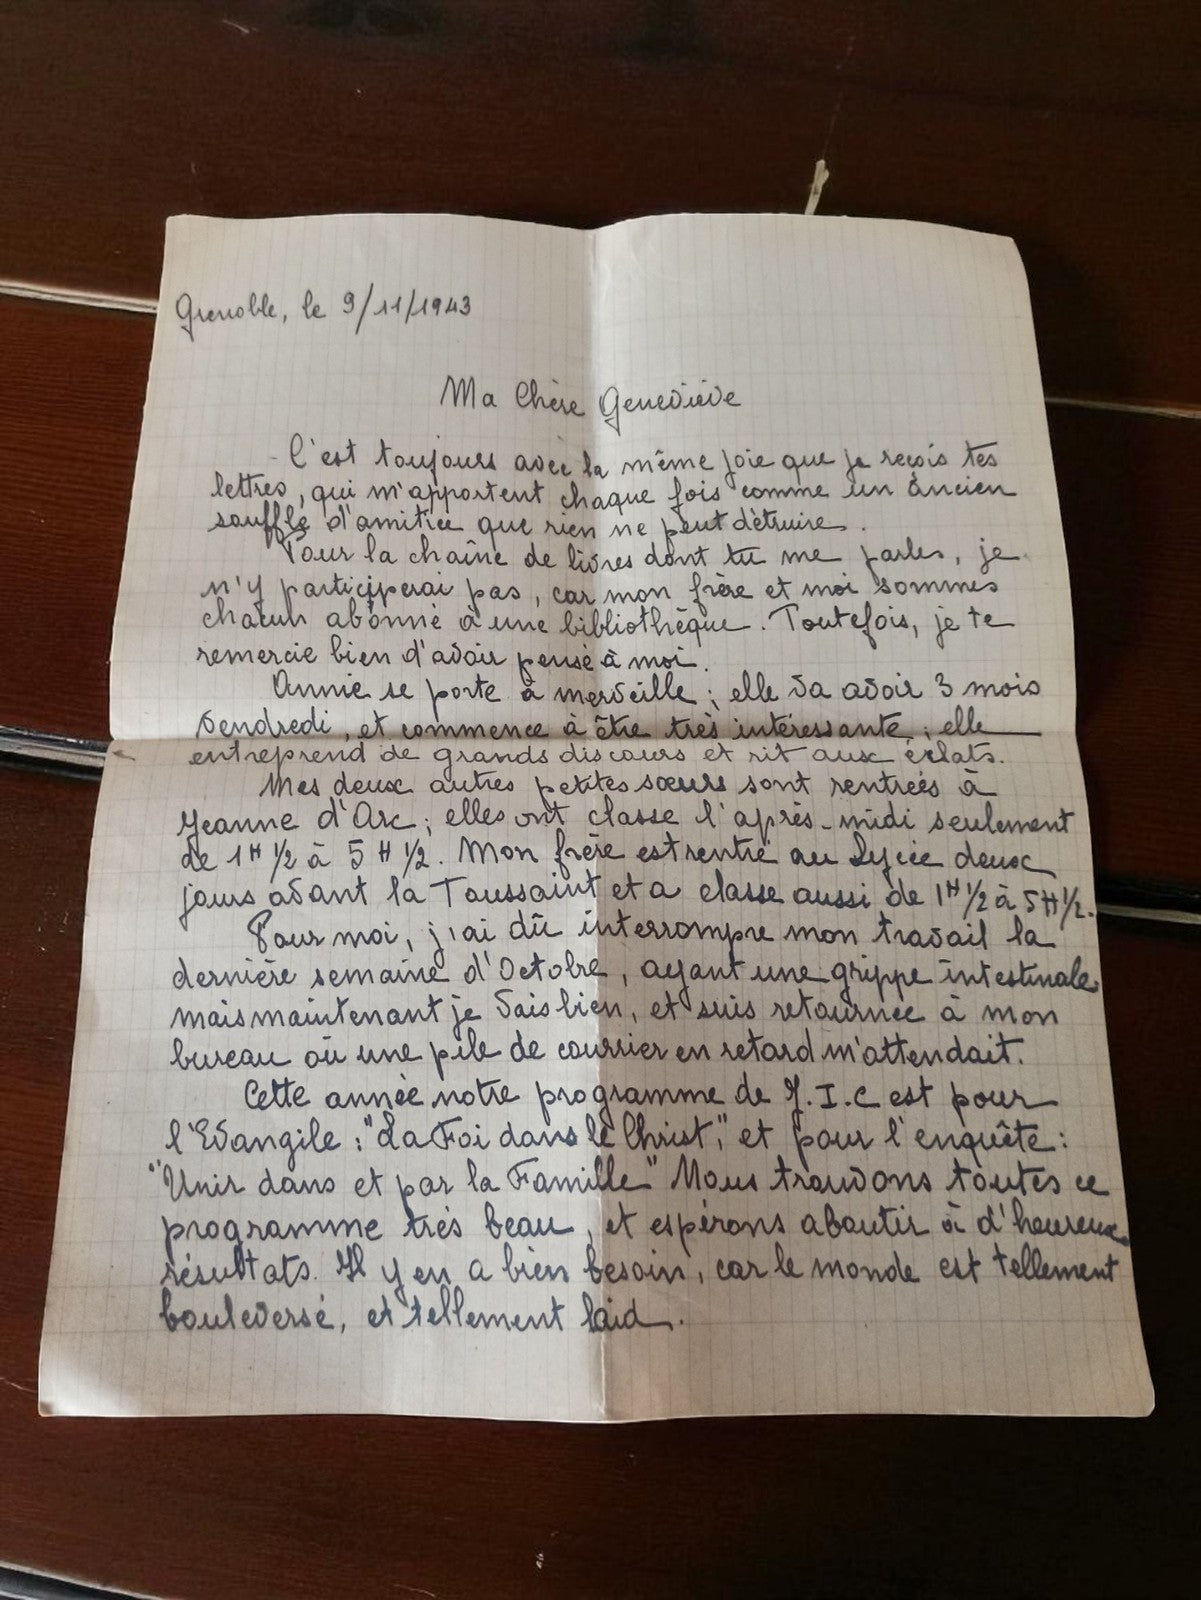 Grenoble, le 9/11/1943
Ma Chère Geneviève
C'est toujours avec la même joie que je reçois tes
lettres, qui m'apportent chaque fois comme un ancien
souffle d'amitié que rien ne peut détruire.
Pour la chaîne de livres dont tu me parles, je
n'y participerai pas, car mon frère et moi sommes
chacun abonné à une bibliothèque. Toutefois, je te
remercie bien d'avoir pensé à moi.
Annie se porte à merveille ; elle va avoir 3 mois
Vendredi, et commence à être très intéressante ; elle
entreprend de grands discours et rit aux éclats.
Mes deux autres petites sœurs sont rentrées à
Jeanne d'Arc ; elles ont classe l'après-midi seulement
de 1H 1/2 à 5H 1/2. Mon frère est rentré au Lycée deux
jours avant la Toussaint et a classe aussi de 1H 1/2 à 5H 1/2.
Pour moi, j'ai dû interrompre mon travail la
dernière semaine d'Octobre, ayant une grippe intestinale,
mais maintenant je vais bien, et suis retournée à mon
bureau où une pile de courrier en retard m'attendait.
Cette année notre programme de J.I.C est pour
l'Evangile : "La Foi dans le Christ", et pour l'enquête :
"Unir dans et par la Famille" Nous trouvons toutes ce
programme très beau, et espérons aboutir à d'heureux
résultats. Il y en a bien besoin, car le monde est tellement
bouleversé, et tellement laid.